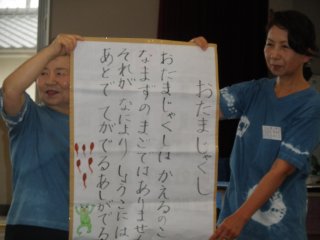 おたまじゃくし
おたまじゃくしはかえるのこ
なまずのまごではありません
それが なにより しょうこには
あとで てがでるあしがでる